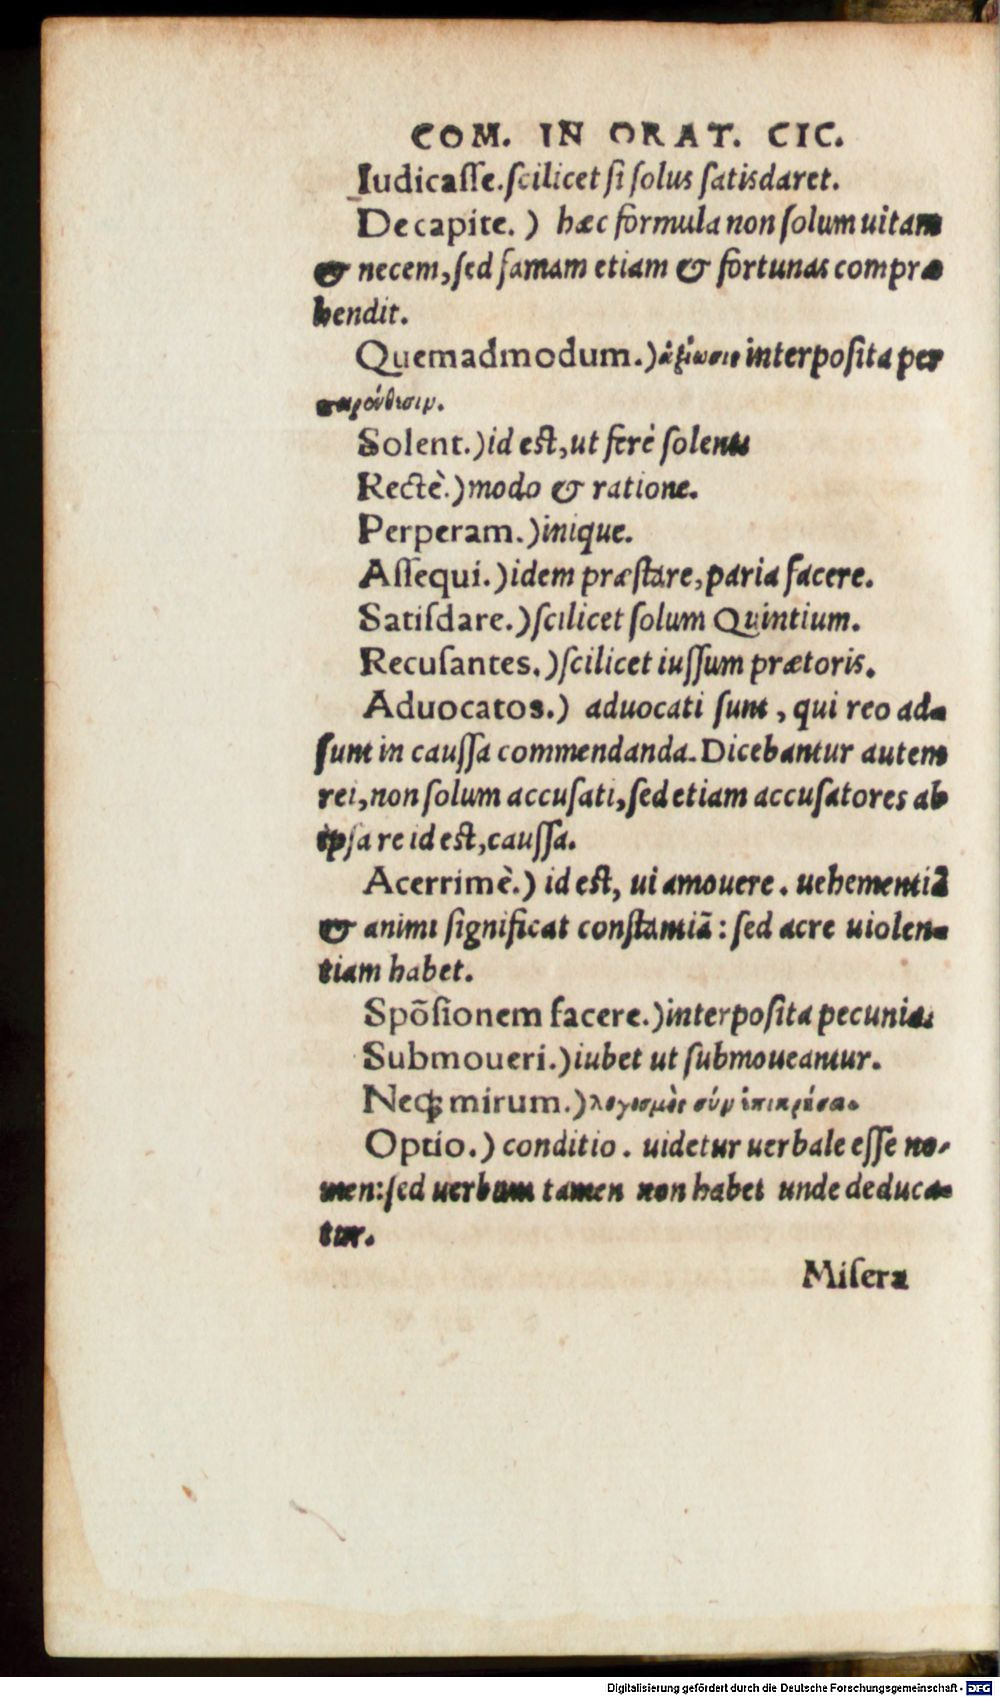 COM. IN ORAT. CIC.
Iudicasse. scilicet si solus satisdaret.
De capite.) hæc formula non solum uitam
& necem, sed famam etiam & fortunas compræ
hendit.
Quemadmodum.) ἀξίωσις interposita per
παρένθεσιν.
Solent.) id est, ut ferè solent
Rectè.) modo & ratione.
Perperam.) inique.
Assequi.) idem præstare, paria facere.
Satisdare.) scilicet solum Quintium.
Recusantes.) scilicet iussum prætoris.
Aduocatos.) aduocati sunt, qui reo ad-
sunt in caussa commendanda. Dicebantur autem
rei, non solum accusati, sed etiam accusatores ab
ipsa re id est, caussa.
Acerrimè.) id est, ui amouere. uehementiã
& animi significat constantiã: sed acre uiolen-
tiam habet.
Spõsionem facere.) interposita pecunia.
Submoueri.) iubet ut submoueantur.
Neq; mirum.) λογισμὸς σὺν ἐπικρίσει.
Optio.) conditio. uidetur uerbale esse no-
men: sed uerbum tamen non habet unde deduca-
tur.
Misera
Digitalisierung gefördert durch die Deutsche Forschungsgemeinschaft - DFG